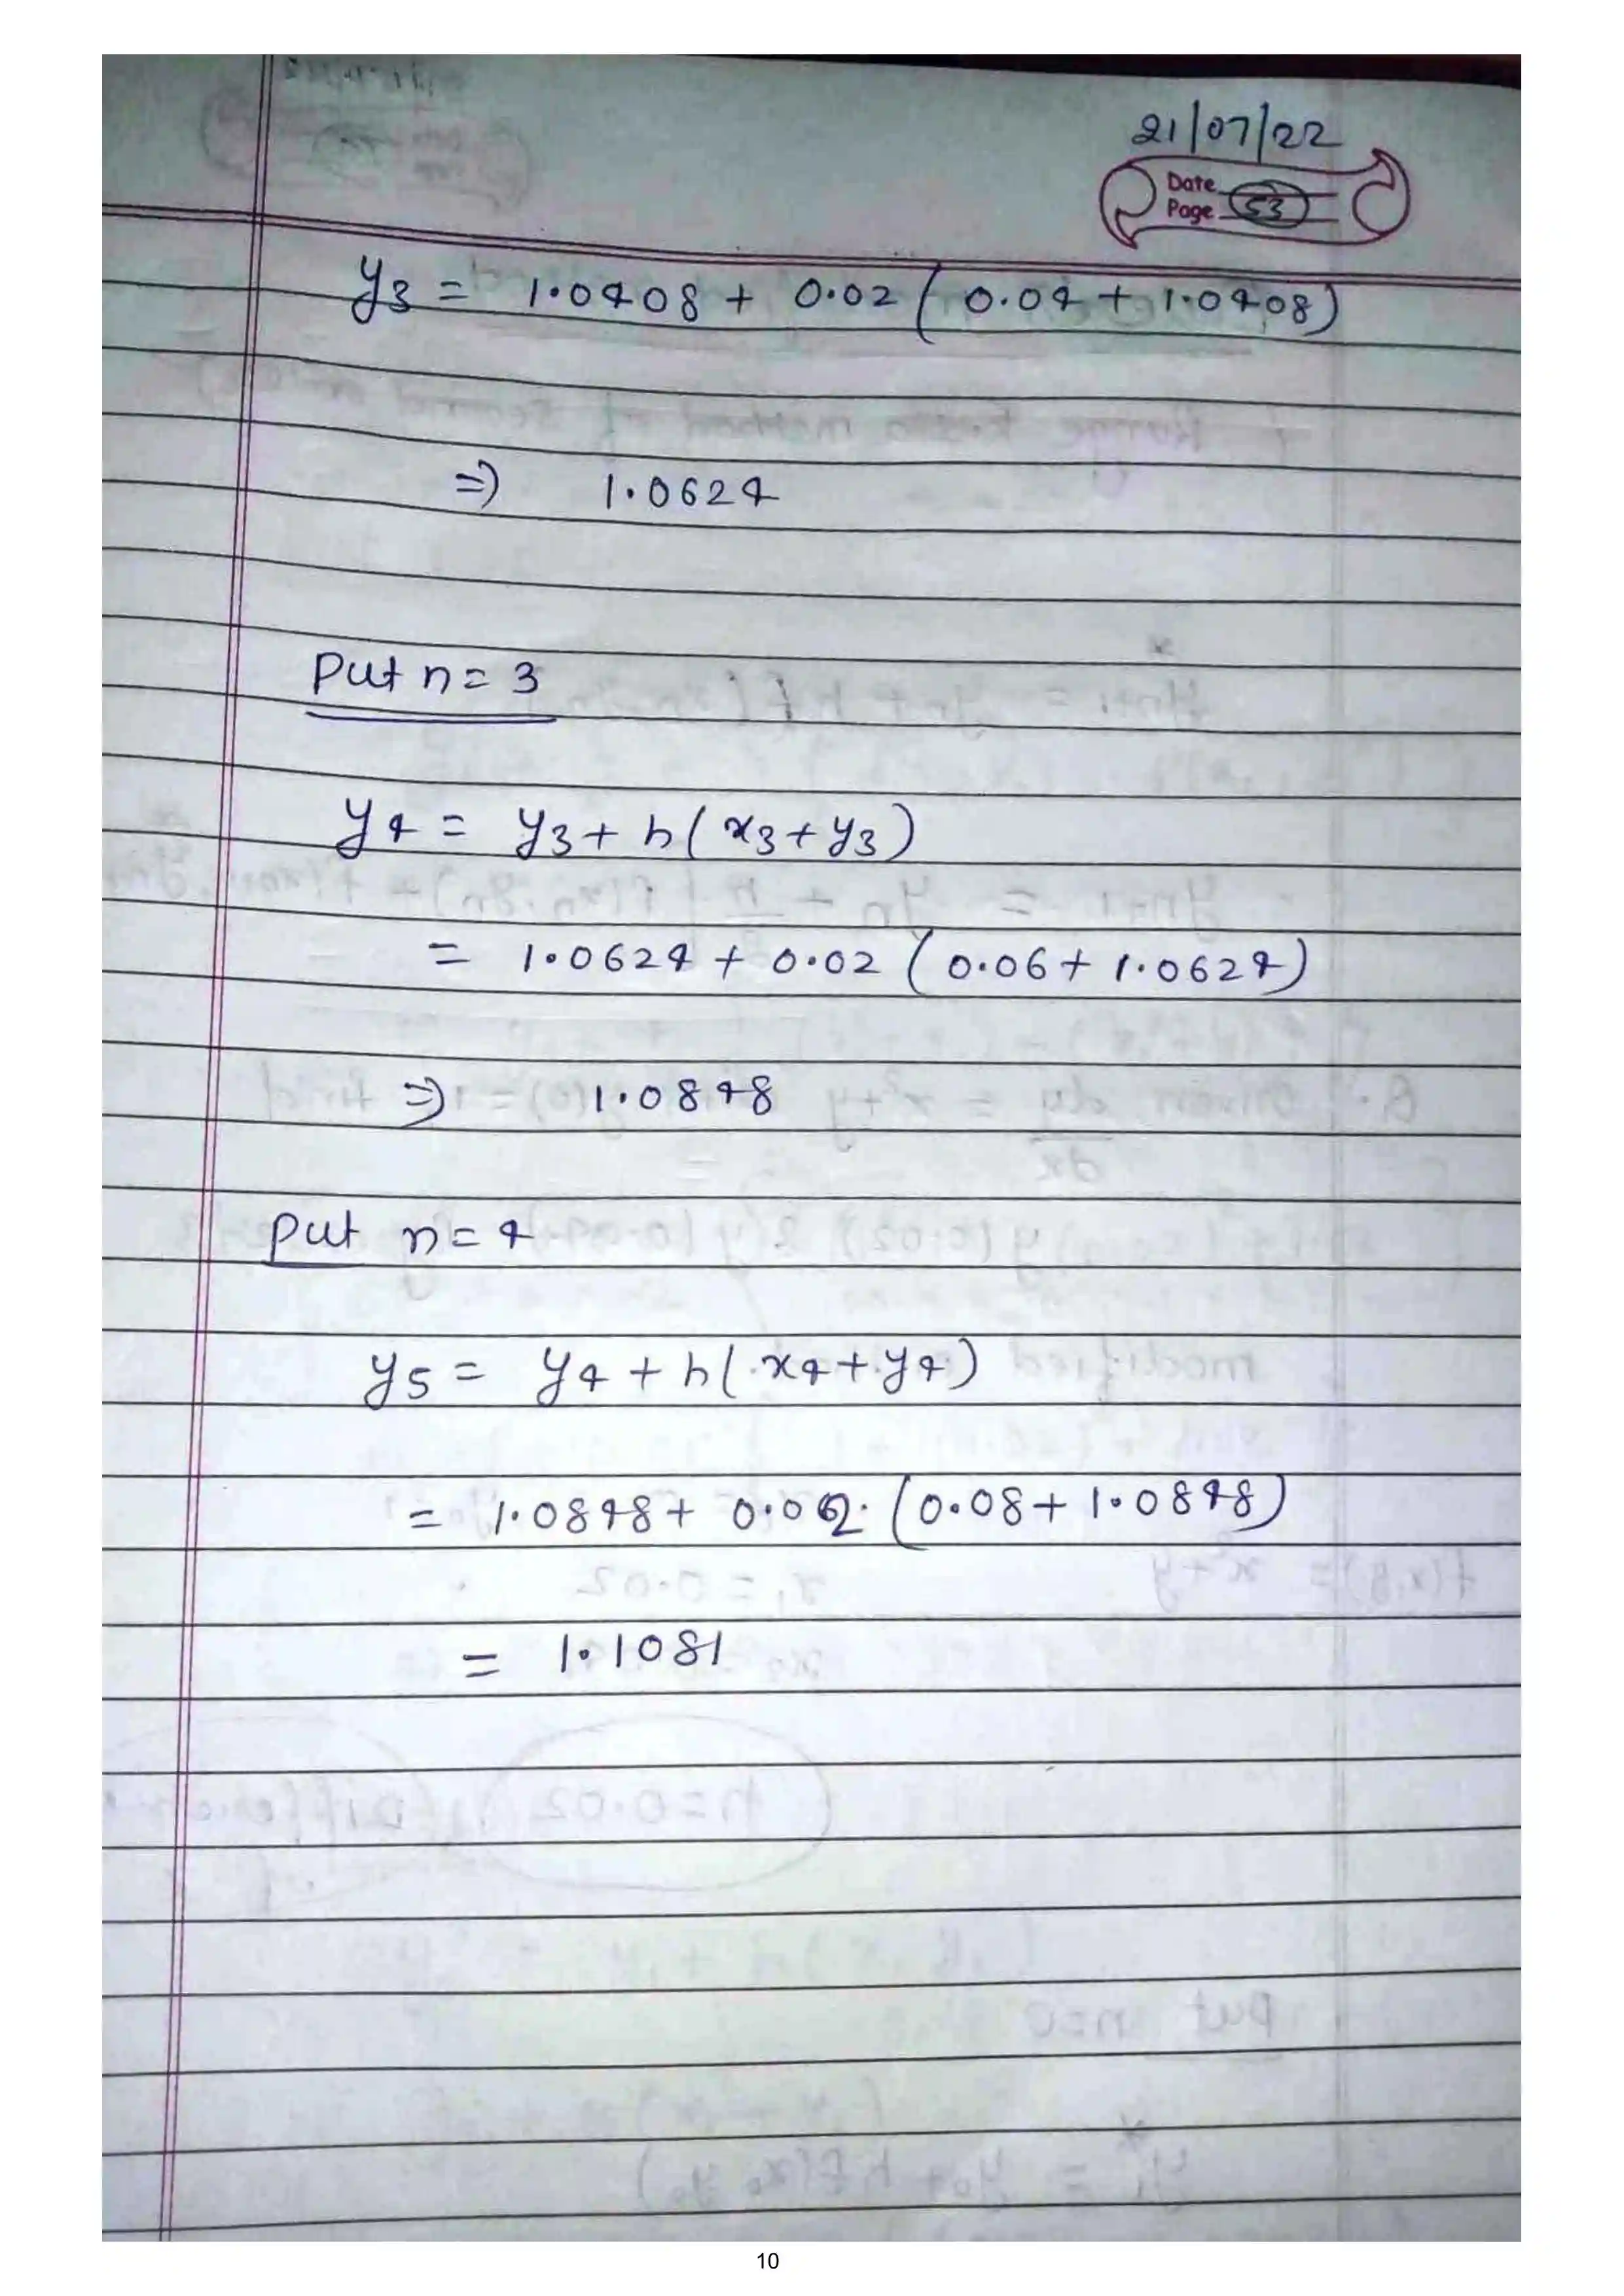 21/07/22
Date
Page 53
y3 = 1.0408 + 0.02 ( 0.04 + 1.0408)
=) 1.0624
Put n = 3
y4 = y3 + h ( x3 + y3 )
= 1.0624 + 0.02 ( 0.06 + 1.0624)
=) 1.0848
Put n = 4
y5 = y4 + h ( x4 + y4 )
= 1.0848 + 0.02 ( 0.08 + 1.0848)
= 1.1081
10